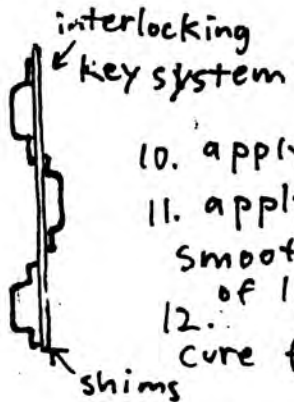 interlocking
key system
10. appl
11. appl
smoot
of 1
12.
cure f
shims